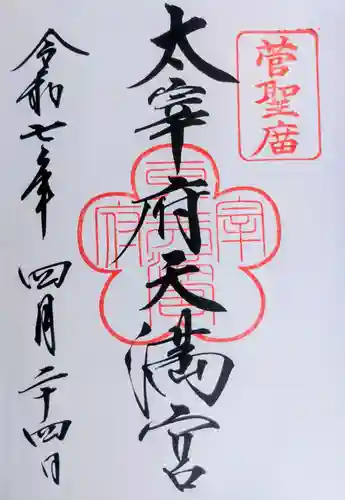 菅聖廟
太宰府天満宮
令和七年四月二十四日